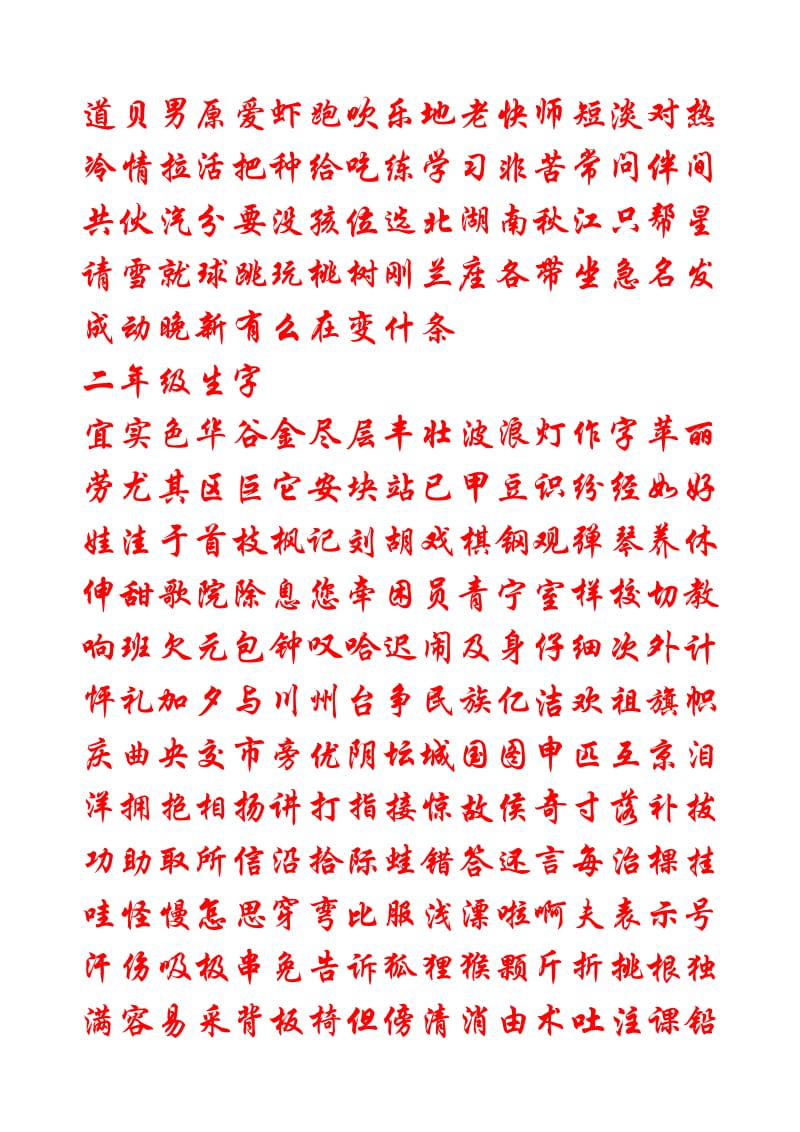 道贝男原爱虾跑吹乐地老快师短淡对热
冷情拉活把种给吃练学习非苦常问伴间
共伙汽分要没孩位选北湖南秋江只帮星
请雪就球跳玩桃树刚兰座各带坐急名发
成动晚新有么在变什条
二年级生字
宜实色华谷金尽层丰壮波浪灯作字苹丽
劳尤其区巨它安块站已甲豆识纷经如好
娃洼于首枝枫记刘胡戏棋钢观弹琴养休
伸甜歌院除息您牵困员青宁室样校切教
响班欠元包钟叹哈迟闹及身仔细次外计
怦礼加夕与川州台争民族亿洁欢祖旗帜
庆曲央交市旁优阴坛城国图申匹互京泪
洋拥抱相扬讲打指接惊故侯奇寸落补拔
功助取所信沿拾际蛙错答还言每治棵挂
哇怪慢怎思穿弯比服浅漂啦啊夫表示号
汗伤吸极串免告诉狐狸猴颗斤折挑根独
满容易采背板椅但傍清消由术吐注课铅